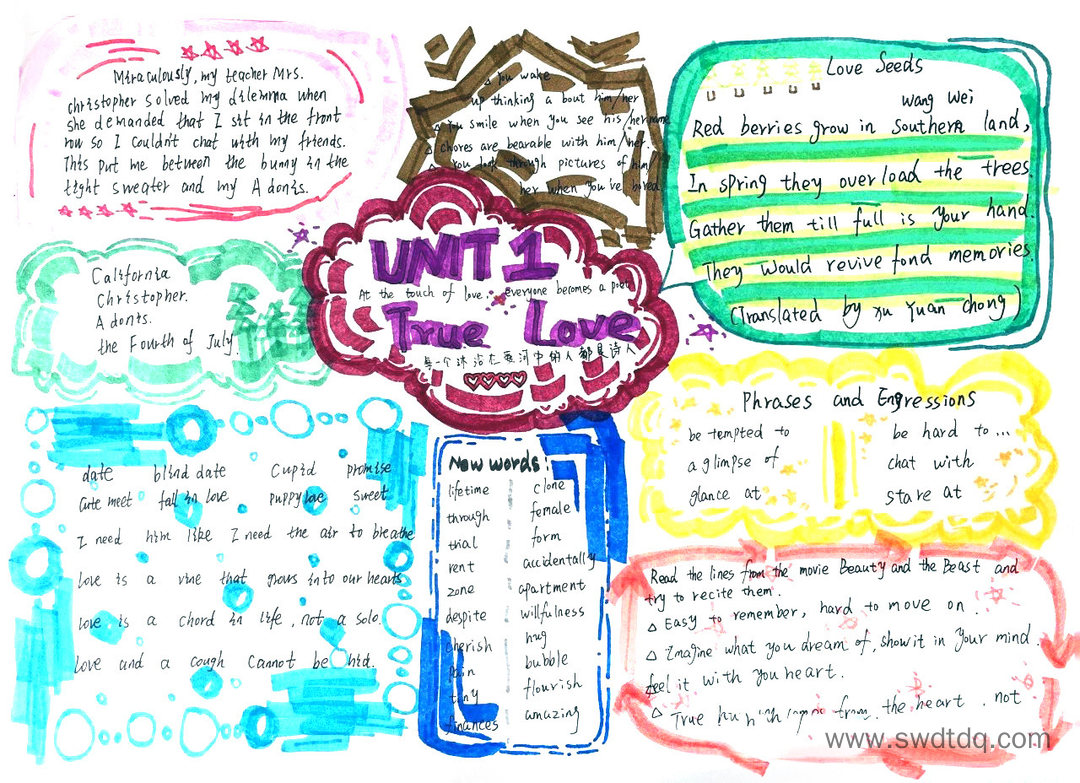 Miraculously, my teacher Mrs.
christopher solved my dilemma when
she demanded that I sit in the front
row so I couldn't chat with my friends.
This put me between the bunny in the
tight sweater and my Adonis.
△ You wake
up thinking a bout him/her
△ You smile when you see his/her name
△ chores are bearable with him/her.
△ You look through pictures of him/
her when you've bored
Love Seeds
wang wei
Red berries grow in Southern land,
In spring they overload the trees
Gather them till full is your hand.
They would revive fond memories.
(Translated by xu Yuan chong)
UNIT 1
At the touch of love. everyone becomes a poet
True Love
每一个沐浴在爱河中的人都是诗人
California
Christopher.
Adonis.
the Fourth of July.
date blind date Cupid promise
Cute meet fall in love puppy love sweet
I need him like I need the air to breathe
Love is a vine that grows into our hearts
Love is a chord in life, not a solo.
Love and a cough cannot be hid.
New words:
lifetime clone
through female
trial form
rent accidentally
zone apartment
despite willfulness
cherish hug
gain bubble
tiny flourish
finances amazing
Phrases and Engressions
be tempted to be hard to...
a glimpse of chat with
glance at stare at
Read the lines from the movie Beauty and the Beast and
try to recite them.
△ Easy to remember, hard to move on.
△ Imagine what you dream of, show it in your mind.
feel it with you heart.
△ True from the heart. not
www.swdtdq.com